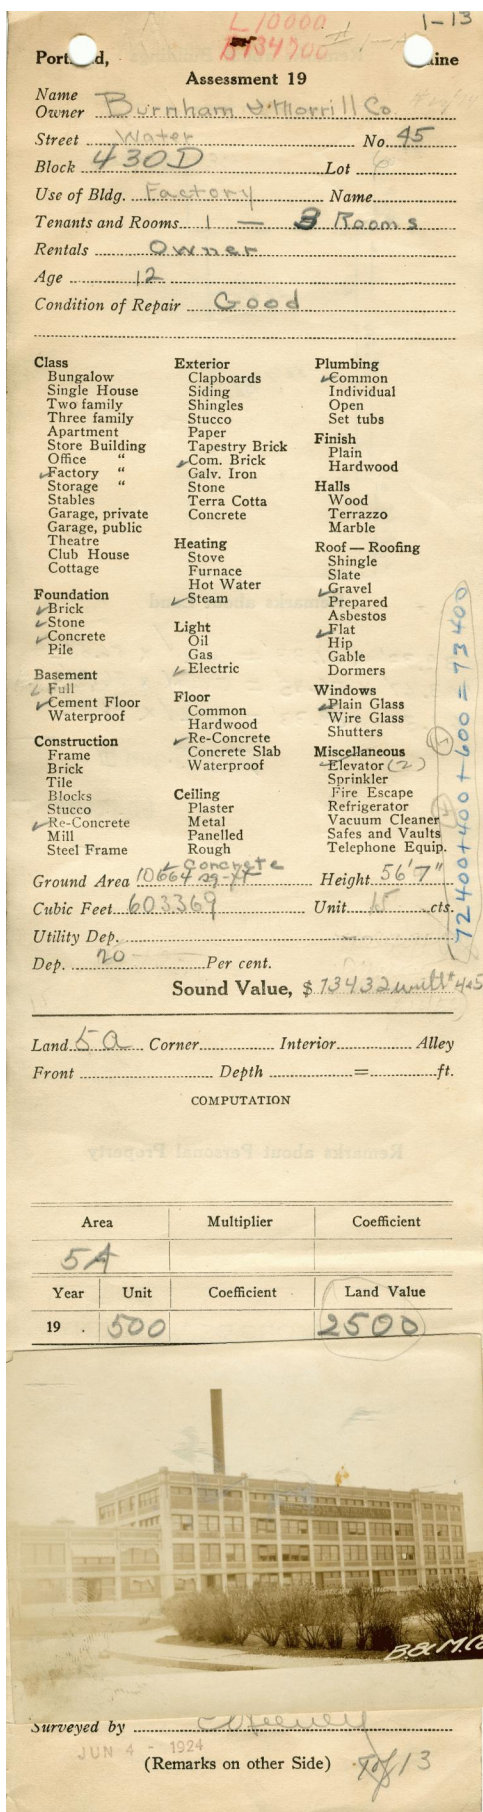 L 10000
B 134700
1-13
Portland, Maine
Assessment 19
Name
Owner Burnham & Morrill Co
Street Water No. 45
Block 430D Lot 6
Use of Bldg. Factory Name
Tenants and Rooms 1 — 3 Rooms
Rentals Owner
Age 12
Condition of Repair Good
Class
Bungalow
Single House
Two family
Three family
Apartment
Store Building
Office "
Factory "
Storage "
Stables
Garage, private
Garage, public
Theatre
Club House
Cottage
Foundation
Brick
Stone
Concrete
Pile
Basement
Full
Cement Floor
Waterproof
Construction
Frame
Brick
Tile
Blocks
Stucco
Re-Concrete
Mill
Steel Frame
Exterior
Clapboards
Siding
Shingles
Stucco
Paper
Tapestry Brick
Com. Brick
Galv. Iron
Stone
Terra Cotta
Concrete
Heating
Stove
Furnace
Hot Water
Steam
Light
Oil
Gas
Electric
Floor
Common
Hardwood
Re-Concrete
Concrete Slab
Waterproof
Ceiling
Plaster
Metal
Panelled
Rough
Concrete
Plumbing
Common
Individual
Open
Set tubs
Finish
Plain
Hardwood
Halls
Wood
Terrazzo
Marble
Roof — Roofing
Shingle
Slate
Gravel
Prepared
Asbestos
Flat
Hip
Gable
Dormers
Windows
Plain Glass
Wire Glass
Shutters
Miscellaneous
Elevator (2)
Sprinkler
Fire Escape
Refrigerator
Vacuum Cleaner
Safes and Vaults
Telephone Equip.
72400+400+600=73400
Ground Area 10664 sq-ft Height 56'7"
Cubic Feet 603369 Unit 15 cts.
Utility Dep.
Dep. 20 Per cent.
Sound Value, $ 73432 with #4+5
Land 5a Corner Interior Alley
Front Depth = ft.
COMPUTATION
Remarks about Personal Property
Area Multiplier Coefficient
5A
Year Unit Coefficient Land Value
19 . 500 2500
B.& M.Co
Surveyed by
JUN 4 - 1924
(Remarks on other Side) 1 of 13